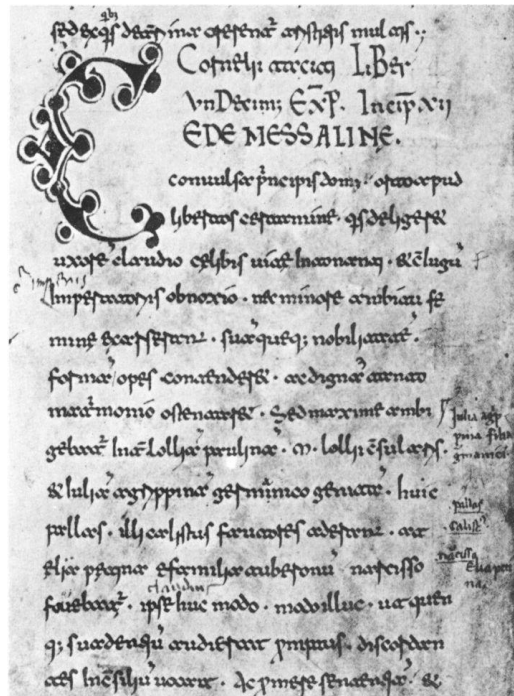 sed ex q̄s deter̄ima oerent᷑ tristitiis multis ;
Corneli taciti LiBer
VnDecim; EXP̄. Incip̄. xii
CEDE MESSALINE.
convulsa p̄ncipis dom; orto apud
libertos certamine. q̄s deligeret
uxorē claudio celibis uite intoleranti. & c̄iugū
Imperiis obnoxio. nec minore ambitu fe
mine exarserant. suā queq; nobilitatē.
formā opes contendere. ac digna tanto
matrimonio ostentare. Sed maxime ambi
gebat᷑ Int̄ Lolliā paulinā. M. lollii c̄sularis.
& Iuliā agrippinā germanico genitā. huic
pallas. illi calistus fautores aderant. at
elia petina e familia tuberonū narcisso
claudius
fovebat᷑. ipse huc modo. modo illuc. ut quem
q; suadentiū audierat p̄mptus. discordan
tes In c̄siliū uocat. Ac p̄mere sententiā. &
Iulia agrip
pina filia
germanici.
pallas
Calist;
narcisso
Elia peti
na.